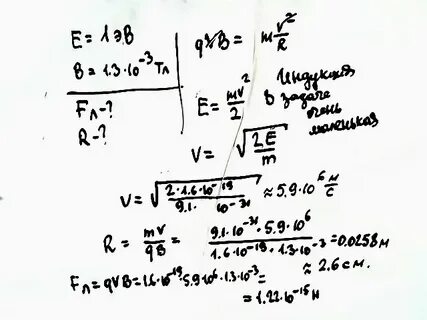 E = 1 эВ
B = 1.3·10⁻³ Тл
Fл - ?
R - ?
qVB = m V²/R
E = mv²/2
Индукция
в задаче
очень
маленькая
V = √(2E/m)
V = √(2·1.6·10⁻¹⁹ / 9.1· 10⁻³¹) ≈ 5.9·10⁶ м/с
R = mV/qB = 9.1·10⁻³¹·5.9·10⁶ / 1.6·10⁻¹⁹·1.3·10⁻³ = 0.0258 м
≈ 2.6 см.
Fл = qVB = 1.6·10⁻¹⁹·5.9·10⁶·1.3·10⁻³ =
= 1.22·10⁻¹⁵ Н